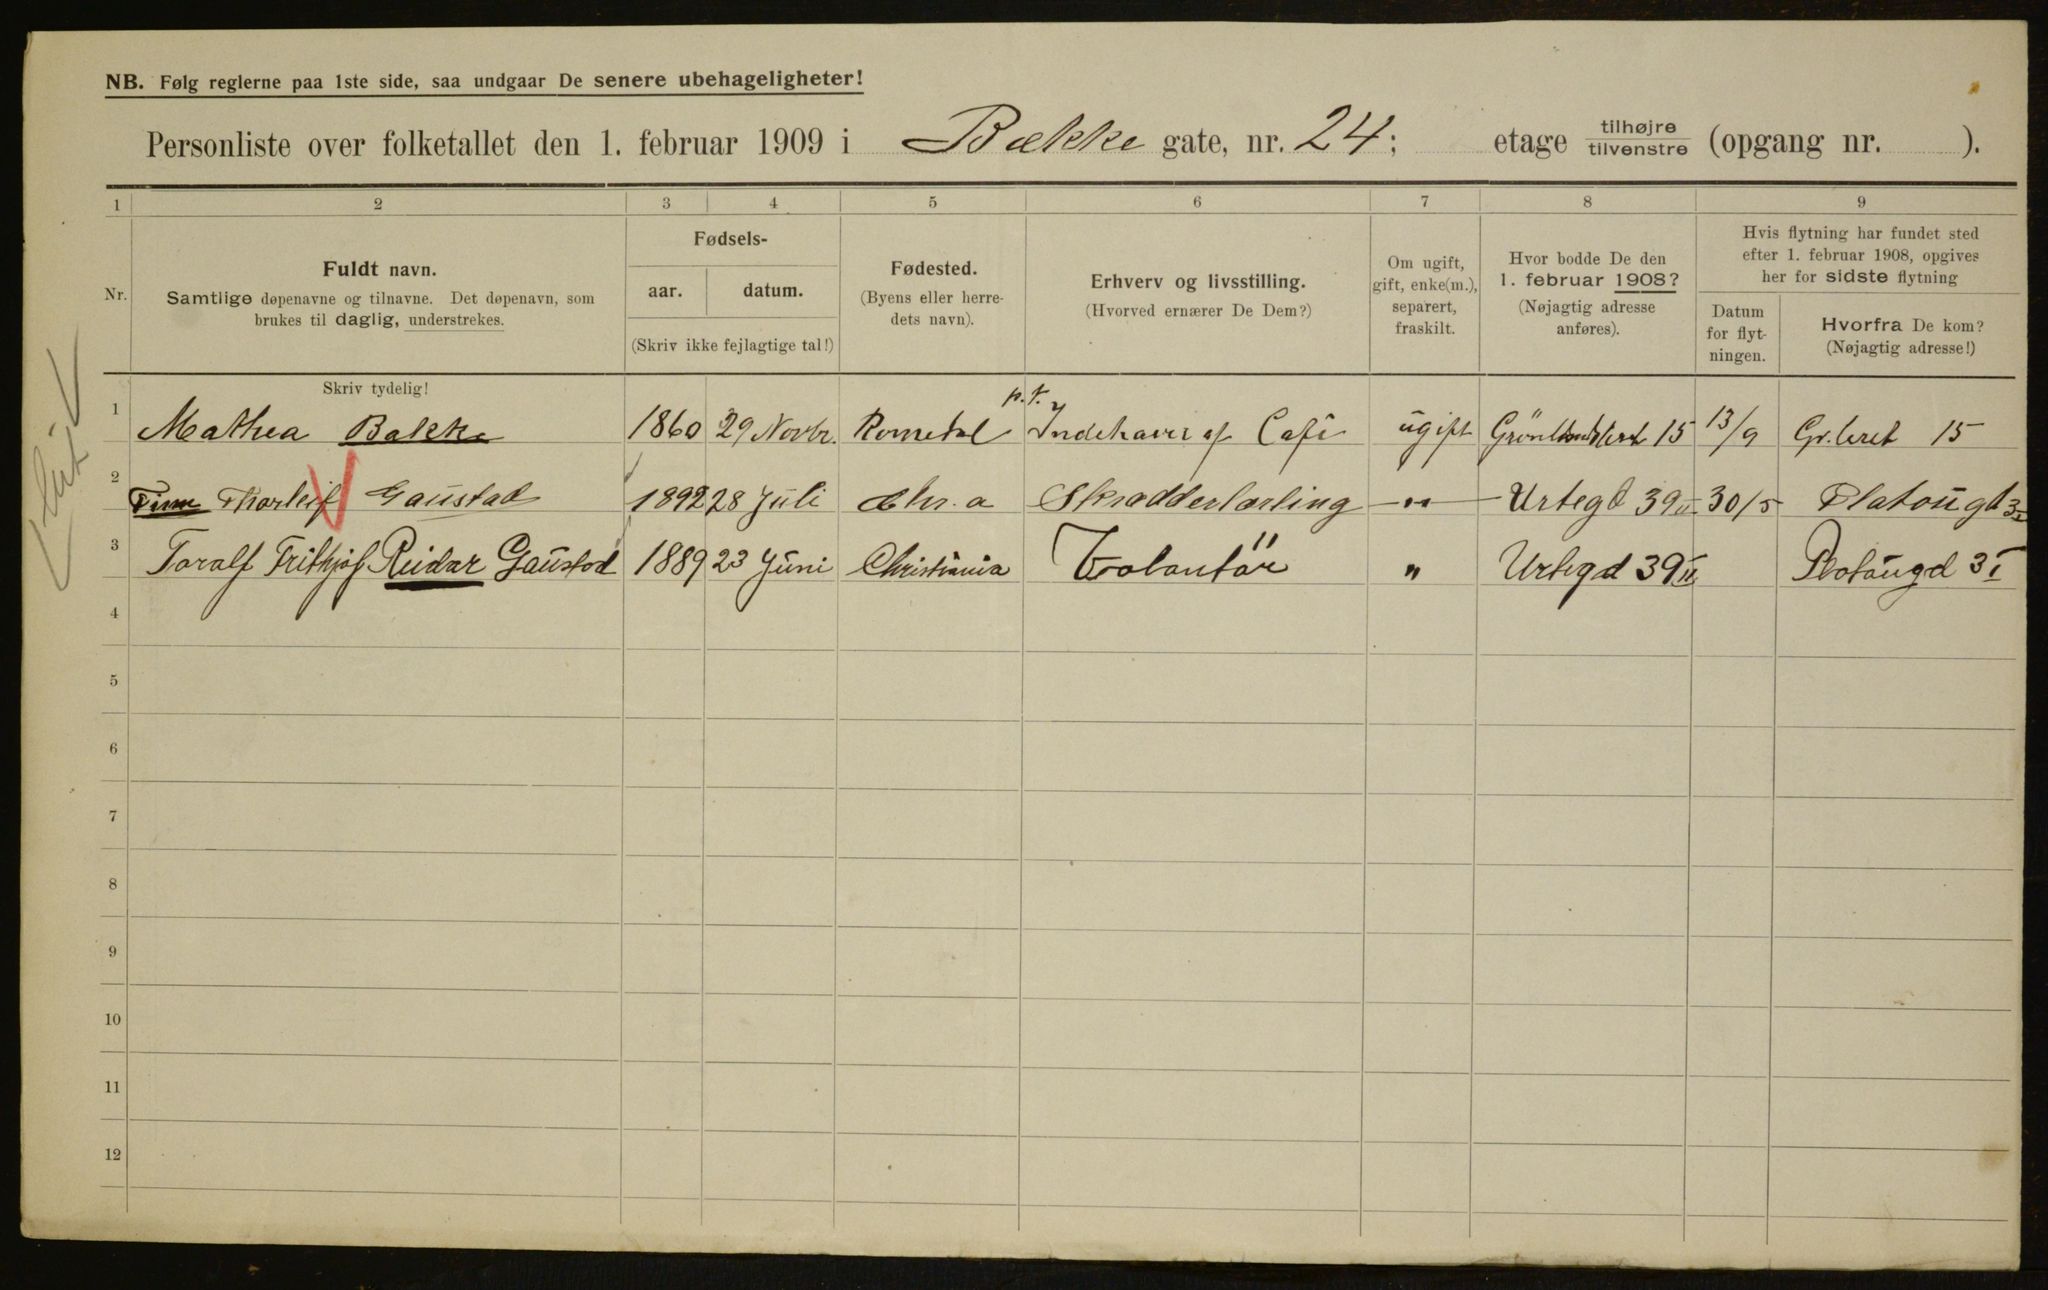 NB. Følg reglerne paa 1ste side, saa undgaar De senere ubehageligheter!
Personliste over folketallet den 1. februar 1909 i Bække gate, nr. 24; etage tilhøjre tilvenstre (opgang nr. ).
1 2 3 4 5 6 7 8 9
Nr.
Fuldt navn.
Samtlige døpenavne og tilnavne. Det døpenavn, som
brukes til daglig, understrekes.
Skriv tydelig!
Fødsels-
aar. datum.
(Skriv ikke fejlagtige tal!)
Fødested.
(Byens eller herre-
dets navn).
Erhverv og livsstilling.
(Hvorved ernærer De Dem?)
Om ugift,
gift, enke(m.),
separert,
fraskilt.
Hvor bodde De den
1. februar 1908?
(Nøjagtig adresse
anføres).
Hvis flytning har fundet sted
efter 1. februar 1908, opgives
her for sidste flytning
Datum
for flyt-
ningen.
Hvorfra De kom?
(Nøjagtig adresse!)
1 Mathea Bakke 1860 29 Novbr. Romedal p.t. Indehaver af Café ugift 15 13/9 Gr.leret 15
2 Finn Thorleif Gaustad 1892 28 Juli Chr.a Skrædderlærling —"— Urtegd 39 II 30/5 Platougd 3 I
3 Toralf Frithjof Reidar Gaustad 1889 23 Juni Christiania Volontör " Urtegd 39 II Platougd 3 I
4
5
6
7
8
9
10
11
12